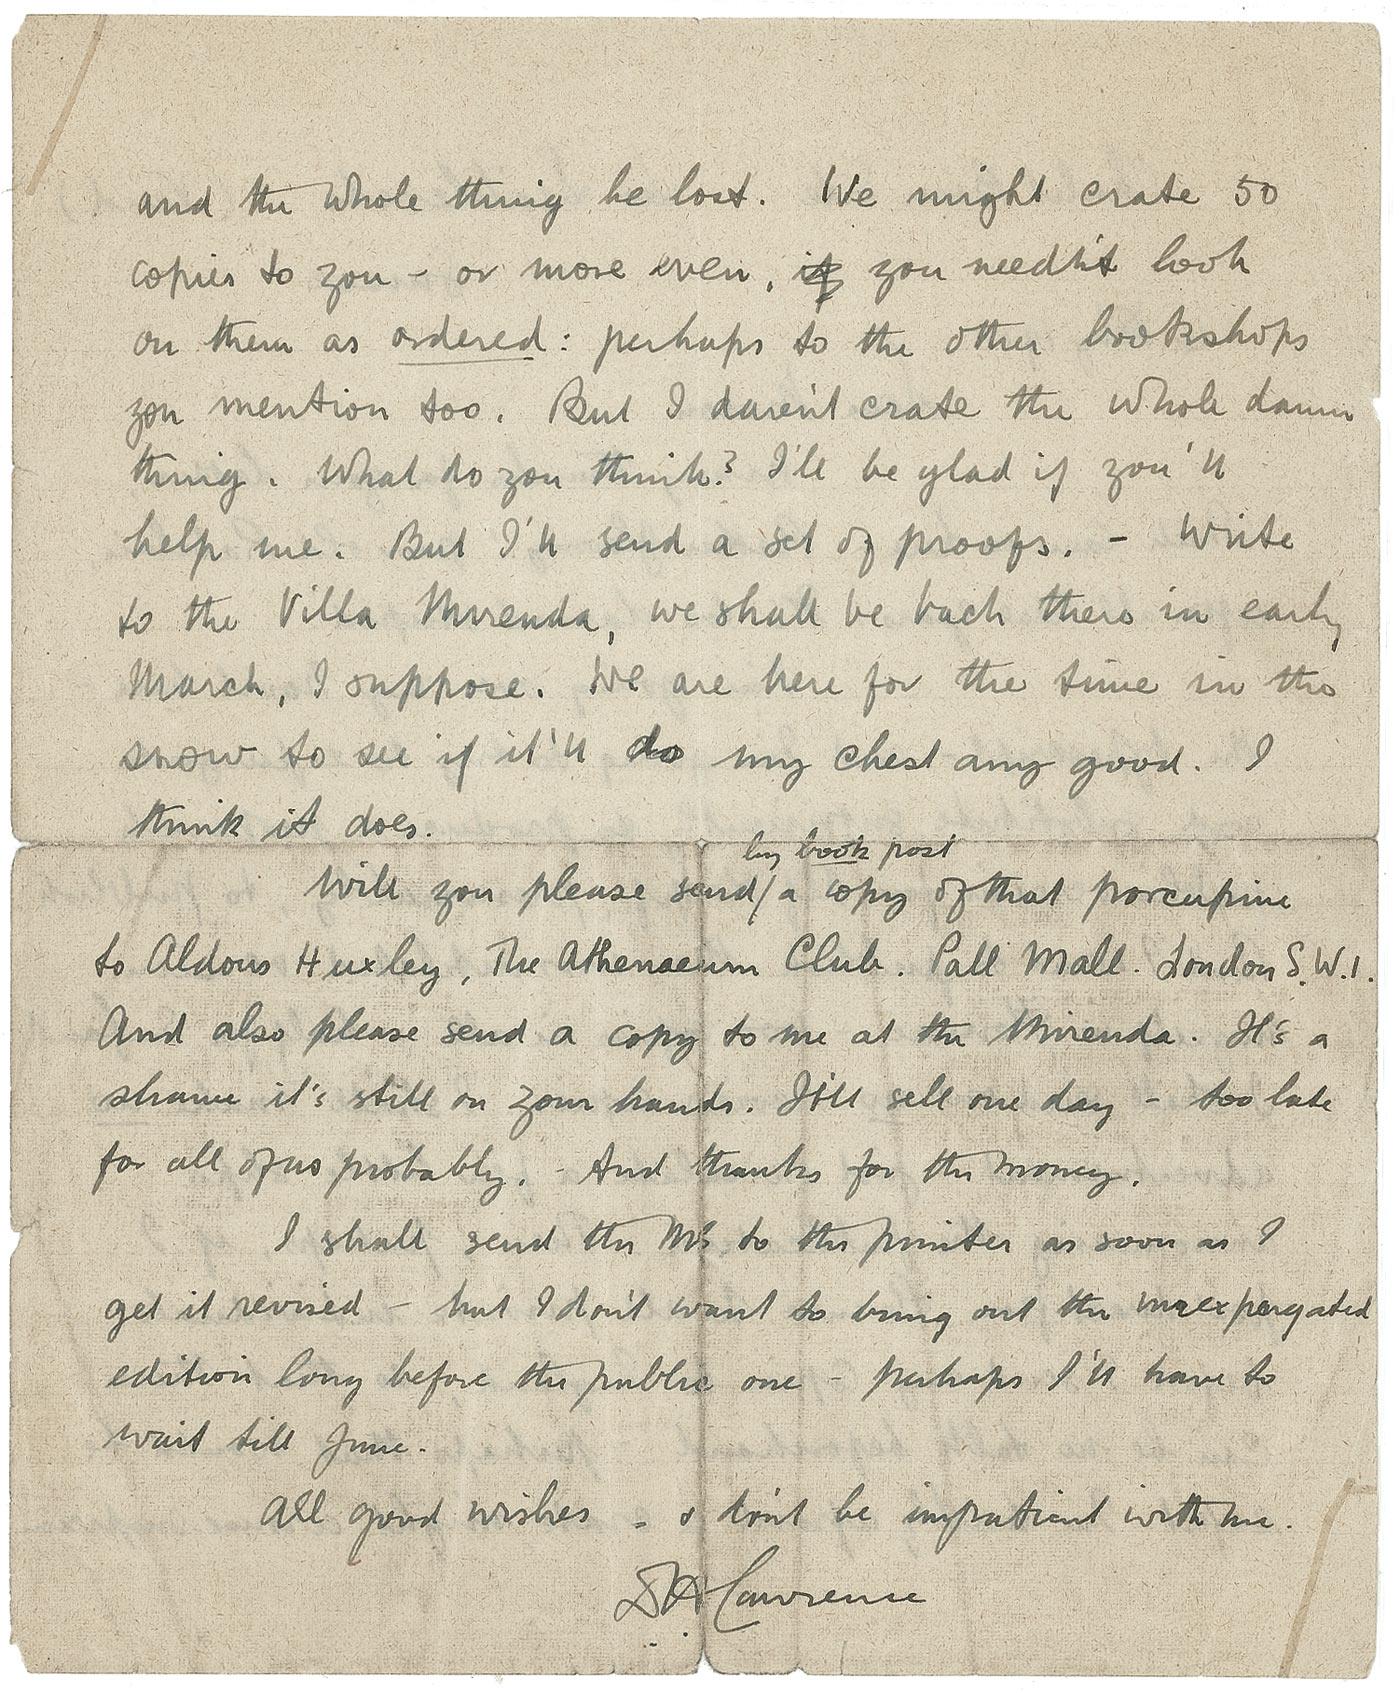 and the whole thing be lost. We might crate 50
copies to you – or more even, if you needn't look
on them as ordered: perhaps to the other bookshops
you mention too. But I daren't crate the whole damn
thing. What do you think? I'll be glad if you'll
help me. But I'll send a set of proofs. – Write
to the Villa Mirenda, we shall be back there in early
March, I suppose. We are here for the time in the
snow to see if it'll do my chest any good. I
think it does.
by book post
Will you please send/a copy of that porcupine
to Aldous Huxley, The Athenaeum Club. Pall Mall. London S.W.1.
And also please send a copy to me at the Mirenda. It's a
shame it's still on your hands. It'll sell one day – too late
for all of us probably. – And thanks for the money.
I shall send the MS to the printer as soon as I
get it revised – but I don't want to bring out the unexpurgated
edition long before the public one – perhaps I'll have to
wait till June.
All good wishes – & don't be impatient with me.
DH Lawrence